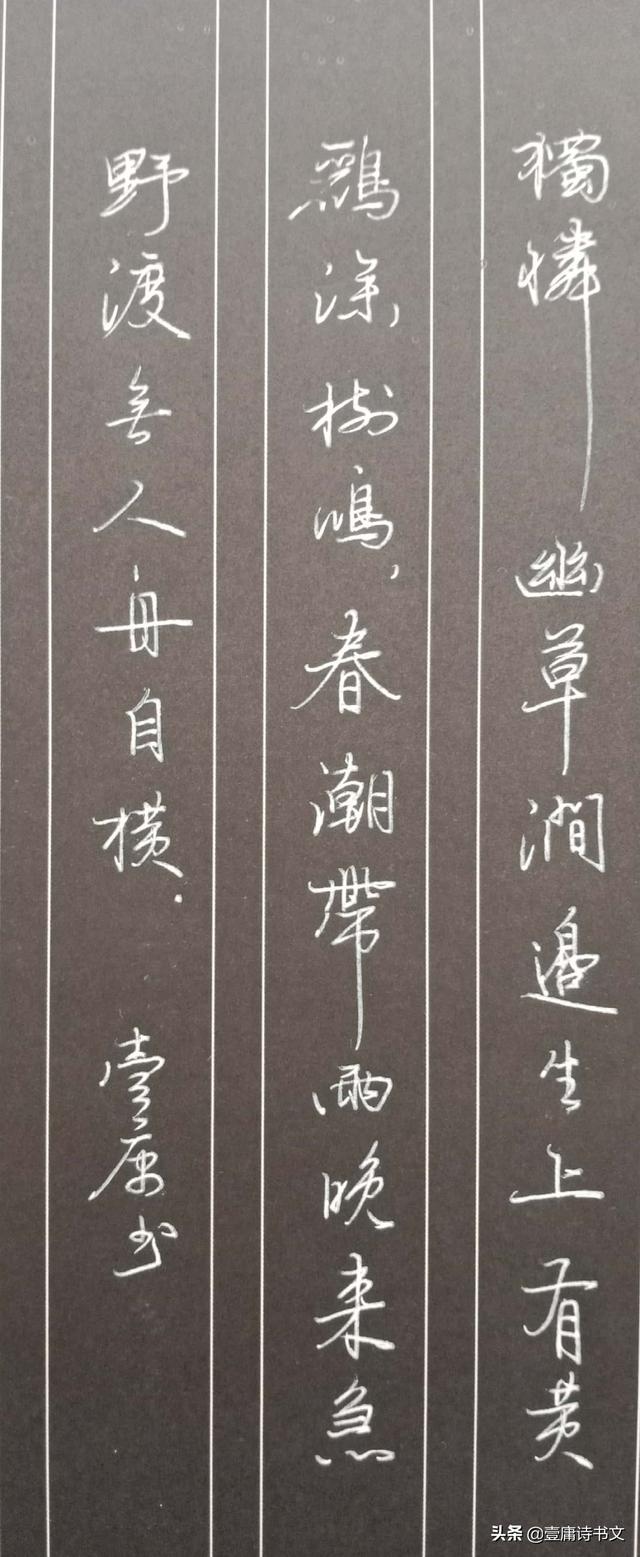 獨憐幽草澗邊生上有黄
鸝深樹鳴,春潮帶雨晚来急
野渡無人舟自横.壹庸书
头条@壹庸诗书文